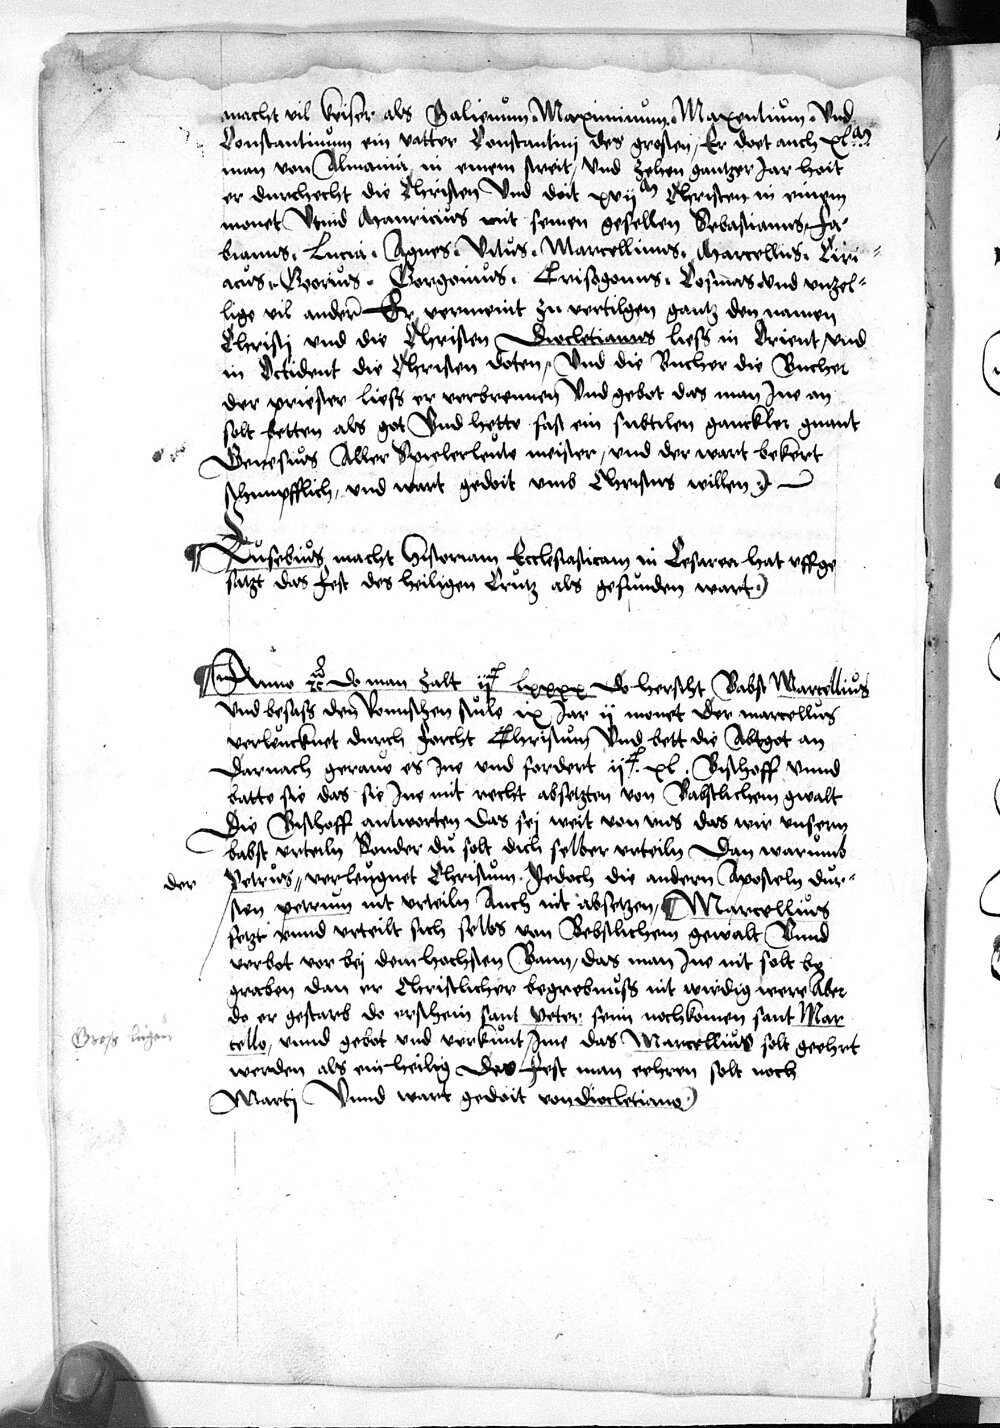 macht vil keiser als Galienum Maximinum. Maxentium. Vnd
Constantinum ein vatter Constantinj des grossen, Er doet auch xl m
man von Almania in einem streit, Vnd zehen gantzer Jar hoit
er durchecht die Christen Vnd doit xvij m Christen in einem
monet Vnnd Mauricius mit seinen gesellen Sebastianus, Fa-
bianus. Lucia. Agnes. Vitus. Marcellinus. Marcellus. Ciri-
acus. Georius. Gorgonius. Crisogonus. Cosmas vnd vnzel-
lige vil ander Er vermeint zu vertilgen gantz den namen
Christj vnd die Christen Diocletianus liess in Orient, vnd
in Occident die Christen doten, Vnd die Bucher die Bucher
der priester liess er verbrennen Vnd gebot das man Jne an
solt betten als got Vnd hette fast ein subtilen ganckler gnant
Genesius Aller Spielerleute meister, vnd der wart bekert
schimpfflich, vnd wart gedoit vmb Christus willen
Eusebius macht Historiam Ecclesiasticam in Cesarea hat vffge
satzt das fest des heiligen Crutz als gefunden wart.
Anno do man zalt ij c lxxxx do herscht Babst Marcellius
vnd besass den Romschen stule ix Jar ij monet Der marcellius
verleucknet durch forcht Christum Vnd bett die Abtgot an
Darnach gerauwe es Jne vnd fordert ij c. xl. Bischoff vnnd
batte sie das sie Jne mit recht absetzten von Babstlichem gwalt
Die Bischoff antworten Das sej weit von vns das wir vnsern
babst vrteiln Sonder du solt dich selber vrteiln Dan warumb
der Petrus, verleugnet Christum. Jedoch die andern Aposteln dur-
sten petrum nit vrteiln Auch nit absetzen, Marcellius
setzt vnnd vrteilt sich selbs von Bebstlichem gewalt Vnnd
verbot vor bej dem hochsten Bann, das man Jne nit solt be
graben dan er Christlicher begrebnuss nit wirdig were Aber
do er gestarb do erschein sant Peter seim nochkomen sant Mar
cello, vnnd gebot vnd verkunt Jme das Marcellius solt geehrt
werden als ein heilig Des fest man eehren solt noch
Martij Vnnd wart gedoit von diocletiano
Gross lugen